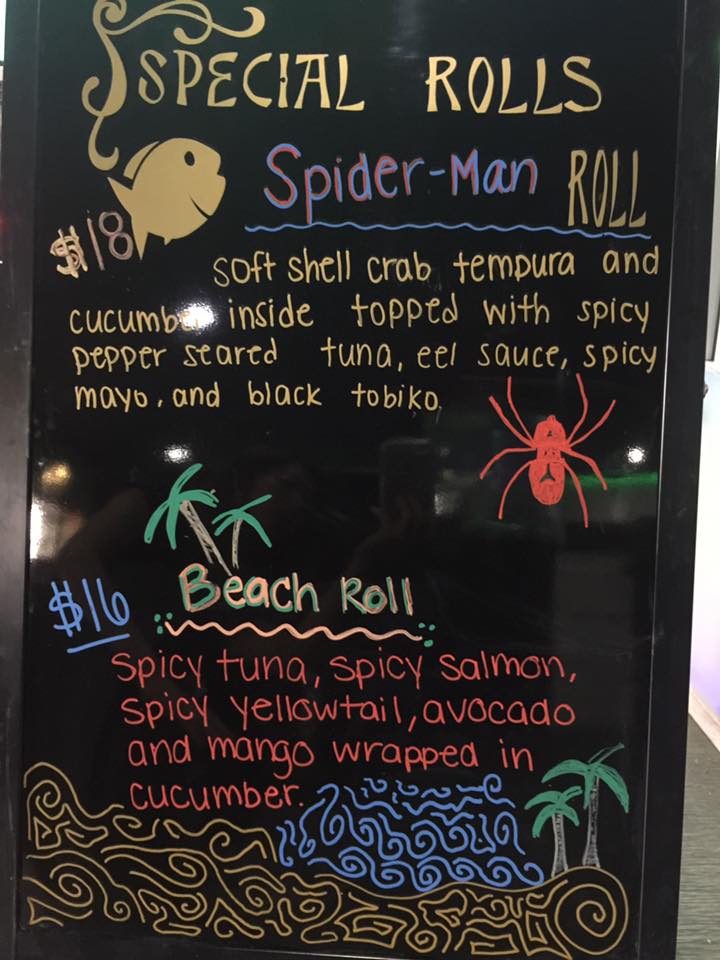 SPECIAL ROLLS
Spider-Man ROLL
$18
soft shell crab tempura and
cucumber inside topped with spicy
pepper seared tuna, eel sauce, spicy
mayo, and black tobiko.
Beach Roll
$16
spicy tuna, spicy salmon,
spicy yellowtail, avocado
and mango wrapped in
cucumber.